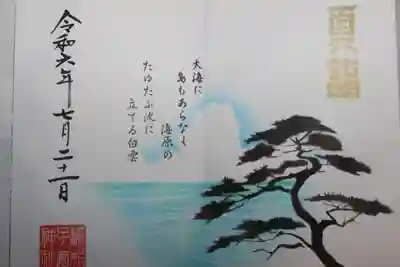 大海に
島もあらなく
海原の
たゆたふ波に
立てる白雲
令和六年七月二十一日